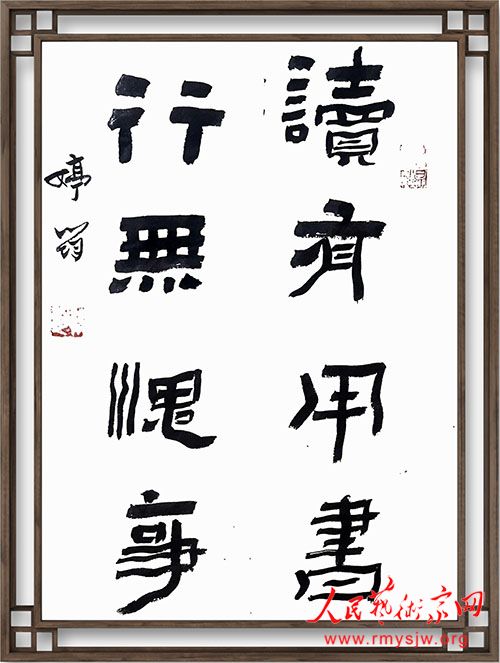 讀有用書
行無愧事
婷
人民藝術家网
www.rmysjw.org